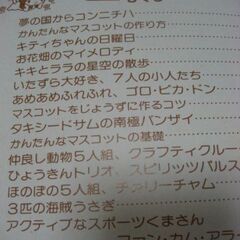 夢の国からコンニチハ
かんたんなマスコットの作り方
キティちゃんの日曜日
お花畑のマイメロディ
キキとララの星空の散歩
いたずら大好き、7人の小人たち
あめあめふれふれ、ゴロ・ピカ・ドン
マスコットをじょうずに作るコツ
タキシードサムの南極バンザイ
かんたんなマスコットの基礎
仲良し動物5人組、クラフティクルー
ひょうきんトリオ、スピリッツパルス
ほのぼの5人組、チアリーチャム
3匹の海賊うさぎ
アクティブなスポーツくまさん